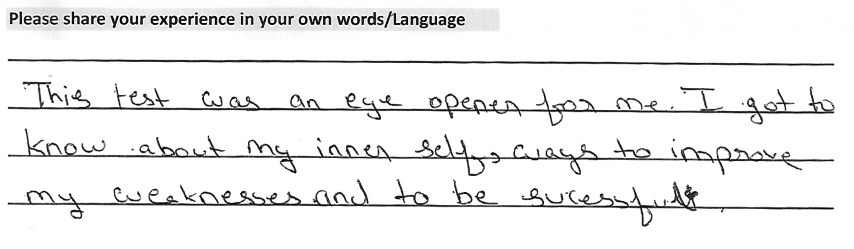 Please share your experience in your own words/Language
This test was an eye opener for me. I got to
know about my inner self, ways to improve
my weaknesses and to be sucessful.